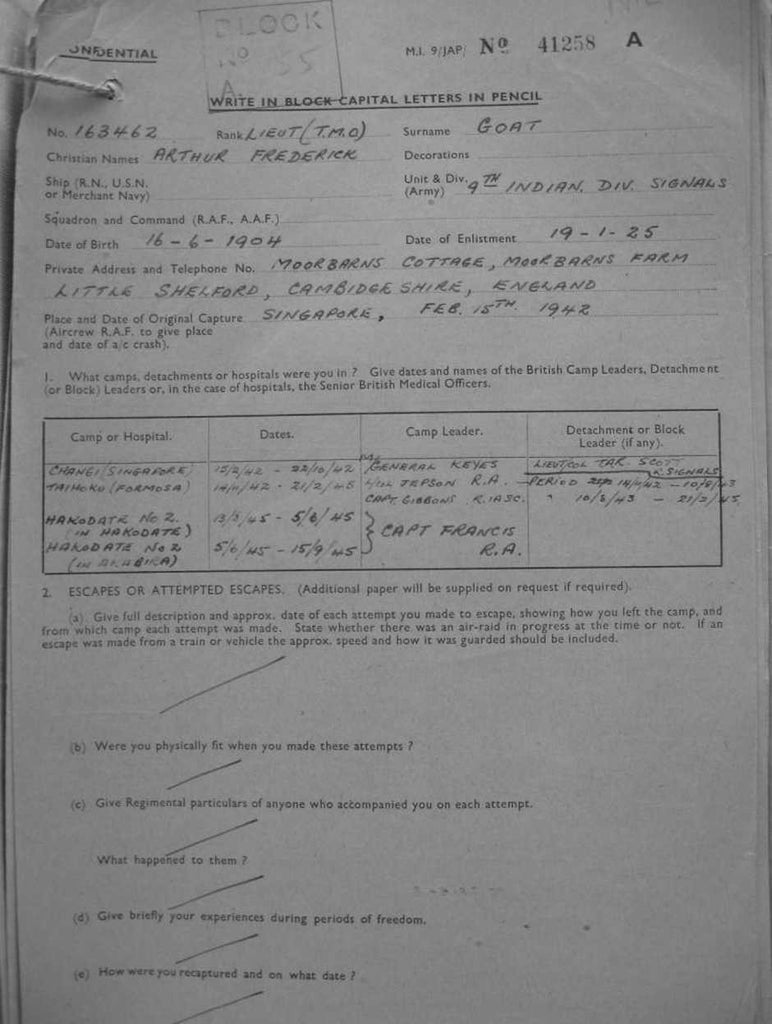 BLOCK
NO 55
A
ONFIDENTIAL
M.I. 9/JAP/ No 41258 A
WRITE IN BLOCK CAPITAL LETTERS IN PENCIL
No. 163462 Rank LIEUT (T.M.O) Surname GOAT
Christian Names ARTHUR FREDERICK Decorations
Ship (R.N., U.S.N. or Merchant Navy)
Unit & Div. (Army) 9TH INDIAN. DIV. SIGNALS
Squadron and Command (R.A.F., A.A.F.)
Date of Birth 16-6-1904 Date of Enlistment 19-1-25
Private Address and Telephone No. MOORBARNS COTTAGE, MOORBARNS FARM
LITTLE SHELFORD, CAMBIDGESHIRE, ENGLAND
Place and Date of Original Capture SINGAPORE, FEB. 15TH. 1942
(Aircrew R.A.F. to give place
and date of a/c crash).
1. What camps, detachments or hospitals were you in ? Give dates and names of the British Camp Leaders, Detachment
(or Block) Leaders or, in the case of hospitals, the Senior British Medical Officers.
Camp or Hospital. Dates. Camp Leader. Detachment or Block
Leader (if any).
CHANGI (SINGAPORE) 15/2/42 - 22/10/42 GENERAL KEYES LIEUT/COL SCOTT
R. SIGNALS
TAIHOKU (FORMOSA) 14/11/42 - 21/2/45 JEPSON R.A. - PERIOD 14/11/42 - 10/5/43
CAPT. GIBBONS R.IASC. " 10/5/43 - 21/2/45
HAKODATE No 2. 13/3/45 - 5/6/45
(IN HAKODATE)
CAPT FRANCIS
R.A.
HAKODATE No 2 5/6/45 - 15/9/45
2. ESCAPES OR ATTEMPTED ESCAPES. (Additional paper will be supplied on request if required).
(a) Give full description and approx. date of each attempt you made to escape, showing how you left the camp, and
from which camp each attempt was made. State whether there was an air-raid in progress at the time or not. If an
escape was made from a train or vehicle the approx. speed and how it was guarded should be included.
(b) Were you physically fit when you made these attempts ?
(c) Give Regimental particulars of anyone who accompanied you on each attempt.
What happened to them ?
(d) Give briefly your experiences during periods of freedom.
(e) How were you recaptured and on what date ?